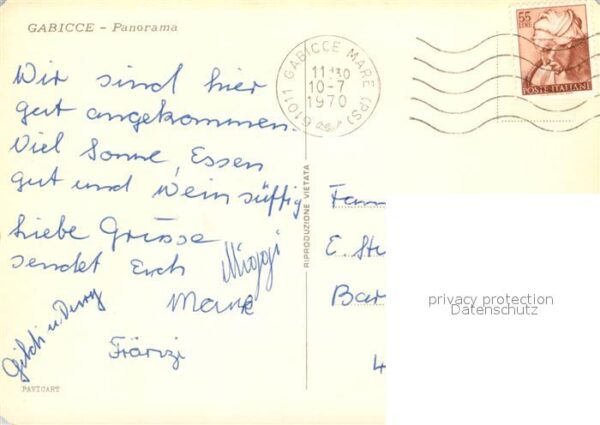 GABICCE - Panorama
55
LIRE
POSTE ITALIANE
61011 GABICCE MARE (PS)
11 30
10-7
1970
Wir sind hier
gut angekommen.
Viel Sonne, Essen
gut und Wein süffig
Liebe Grüsse
sendet Euch
RIPRODUZIONE VIETATA
Fam
E. St
Bar
4
privacy protection
Datenschutz
PAVICART